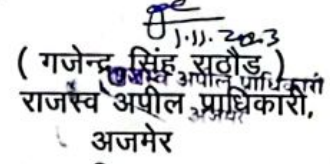 1.11.2023
( गजेन्द्र सिंह राठौड़ )
राजस्व अपील प्राधिकारी
राजस्व अपील प्राधिकारी,
अजमेर
अजमेर